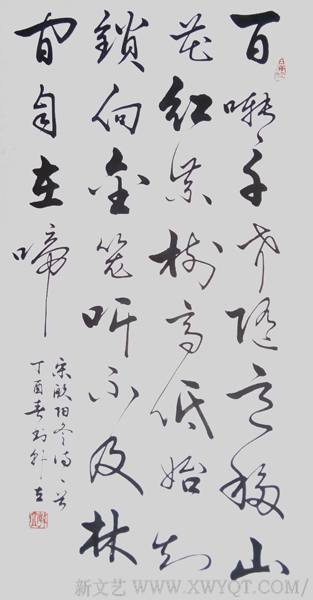 百囀千声随意移山
花红紫树高低始知
鎖向金笼听不及林
间自在啼
宋欧阳修诗一首
丁酉春书
新文艺 WWW.XWYQT.COM